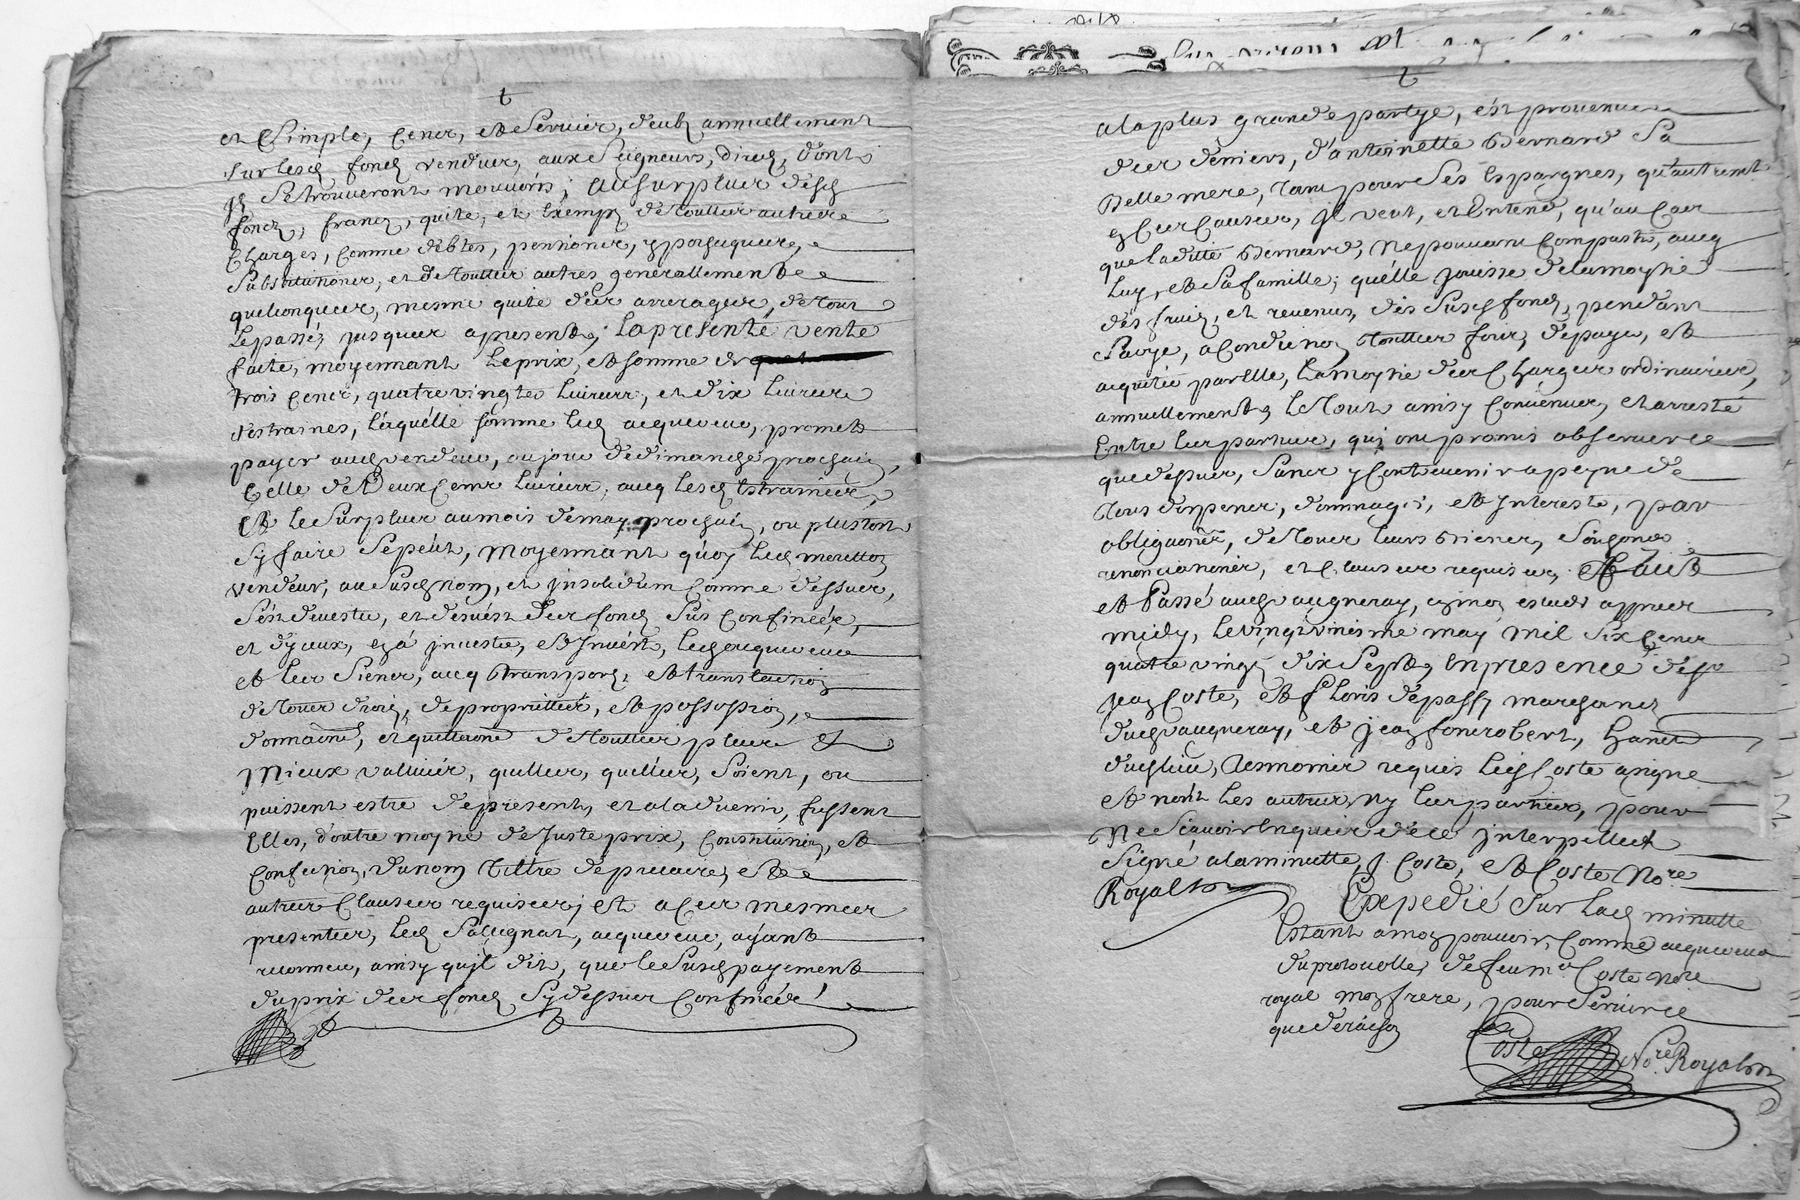 et Simple, Cens, et Servix, deubz annuellement
sur lesd fondz vendus, aux Seigneurs, directz, dont
Ilz Se trouveront mouvoirs; Au surplus desd
fondz, francz, quite, et Exemptz de touttes autres
Charges, comme debtes, pentions, ypotheques,
Substitutions, et de touttes autres generallement
quelconques, mesme quite des arrerages, de tout
Le passé, jusques a present, La presente vente
faite, moyennant Le prix, et somme de
trois Cens, quatre vingtz Livres, et dix Livres
destraines, Laquelle somme led acquereur, promet
payer aud vendeur, au jour de dimanche prochain,
Celle de Deux Cens Livres, avec lesd Estraines,
Et le Surplus au mois de may prochain, ou plustost
Sy faire Se peut, Moyennant quoy led
vendeur, au Susd Nom, et jnsolidum Comme dessus,
S'est devestu, et desvest des fondz sus Confinés,
et d'yceux, en a jnvestu, et Jnvest, led acquereur
et les Siens, avec transport, et translation
de tous droitz, de proprietté, et possession,
domaine, et quittance de touttes plus Et
Mieux vallues, qu'elles, quelles, Soient, ou
puissent estre de present, et a l'advenir, fussent
Elles, d'outre moytié de Juste prix, Constitution, et
Confection, du nom Tiltre de precaire, et
autres Clauses requises, et a Ces mesmes
presentes, led Salignat, acquereur, ayant
reconneu, ainsy qu'il dit, que le Susd payement
du prix des fondz Sy dessus Confinés
a la plus grande partye, est provenu
des deniers, d'antoinette Bernard Sa
Belle mere, tant pour Ses Espargnes, qu'autrement
ez Ces Causes, Il veut, et Entend, qu'au Cas
que laditte Bernard, Ne pouvant Compastir, avec
Luy, et Sa famille, qu'elle Jouisse de la moytié
des fruitz, et revenus, des Susd fondz, pendant
Sa vye, a Condition touttes fois, de payer, et
acquitter par Elle, La moytié des Charges ordinaires,
annuellement, Le Tout ainsy Convenu, et arresté
Entre les parties, qui ont promis observer ce
que dessus, Sans y Contrevenir a peyne de
Tous despens, dommages, et Interestz, par
obligations, de Tous leurs Biens,
renonciations, et Clauses requises, Fait
et Passé aud vaugneray, ez mon estude appres
midy, Le vingt uniesme may Mil Six Cens
quatre vingtz dix Sept, En presence de Sr
Jean Coste, et Floris depassy marchand
dud vaugneray, et Jean foncrobert,
dud lieu, Tesmoins requis led Coste a signé
et non Les autres, Ny les parties, pour
Ne Sçavoir Enquis de ce jnterpellés
Signé a la minutte, J. Coste, et Coste No.re
Royal
Expedié Sur lad minutte
Estant a mon pouvoir, Comme acquereur
du protocolle, de feu m.e Coste No.re
royal mon frere, pour Servir ce
que de raison
Coste No.re Royal